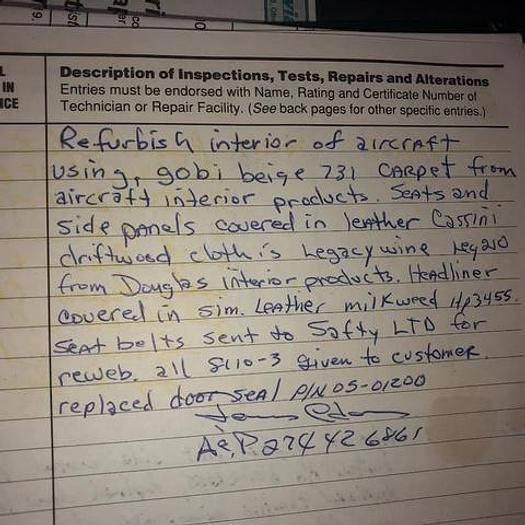 IN
Description of Inspections, Tests, Repairs and Alterations
Entries must be endorsed with Name, Rating and Certificate Number of
Technician or Repair Facility. (See back pages for other specific entries.)
Refurbish interior of aircraft
using, gobi beige 731 carpet from
aircraft interior products. Seats and
side panels covered in leather Cassini
driftwood cloth is Legacy wine leg210
from Douglas interior products. Headliner
covered in sim. Leather milkweed HP3455.
Seat belts sent to Safty LTD for
reweb. all 8110-3 given to customer.
replaced door seal P/N 05-01200
A&P. 274426861